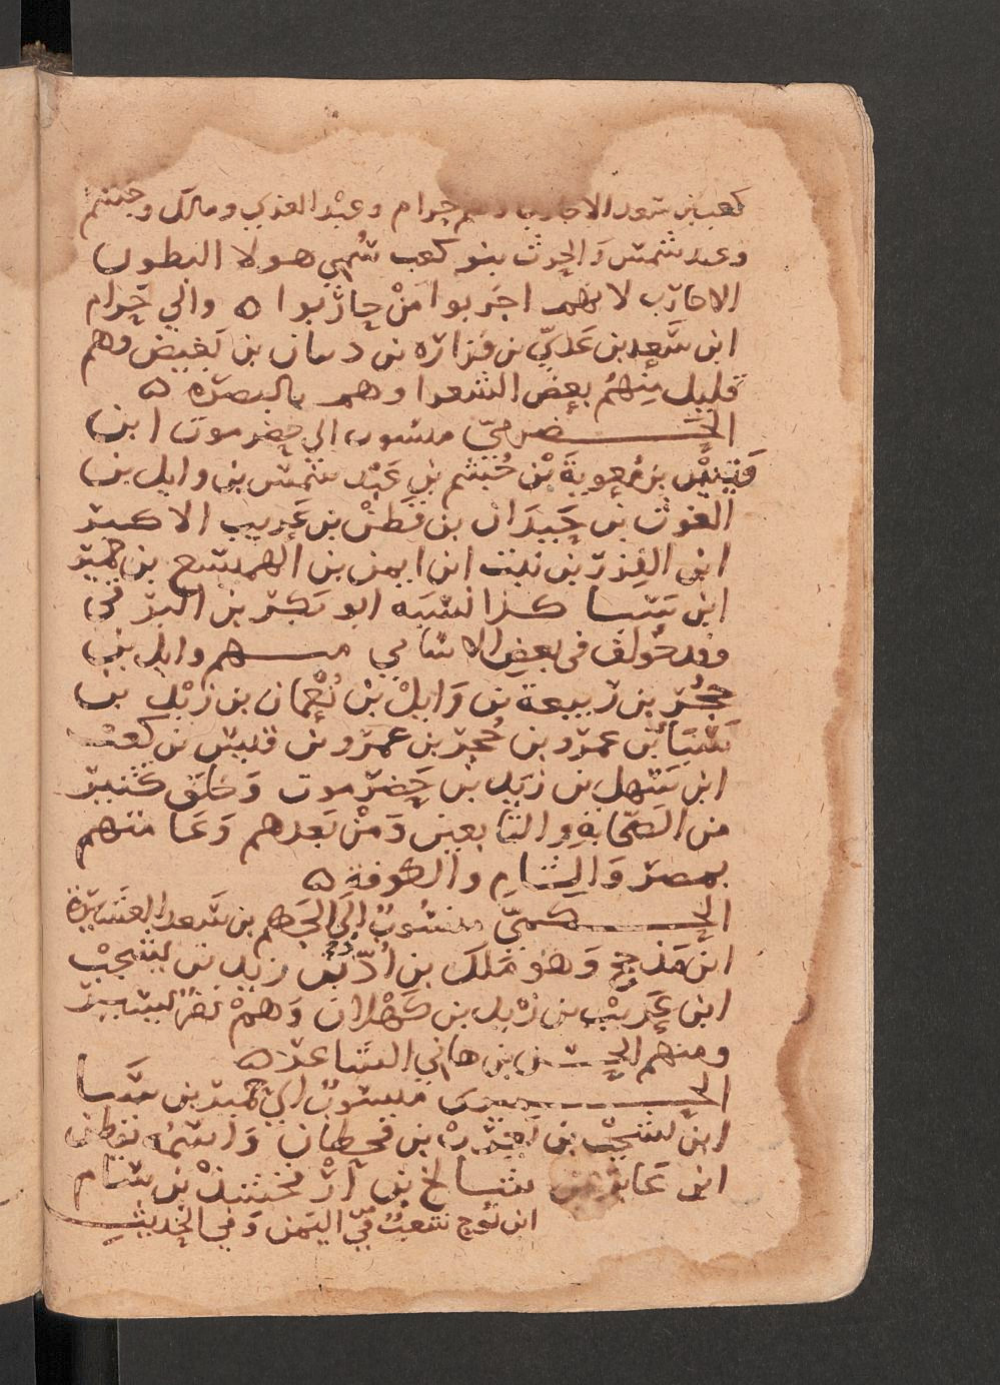 كعب بن سعد الاحارب وهم حرام وعبد العزي ومالك وجشم
وعبد شمس والحرث بنو كعب سُمي هولا البطون
الاحارب لانهم احربوا مَنْ حاربوا ه والي حرام
ابن سَعد بن عَديّ بن فزاره بن دبيان بن بَغيض وهم
قليل مِنهُم بعض الشعرا وهم بالبصره ه
الحَضرميّ منسوب الي حضرموت ابن
قَيْس بن مُعوية بْن جُشم بن عَبْد شمس بن وايل بن
الغوث بن حَيدَان بن قَطنْ بن عَريب الاكبر
ابن الغزر بن نبت ابن ايمن بن الهميسع بن حمير
ابن سَبا كذا نسَبَه ابو بَكر بن البرقي
وقد خُولف في بعض الاسَامي منهم وايل بن
حُجُر بن ربيعة بن وَايلْ بْن نُعْمان بن زبْد بن
بن عمرو بن حُجر بن عمرو بن قيس بن كعب
ابن سَهل بن زيد بن حَضرموت وَخلق كثير
من الصّحابة والتابعين وَمنْ بَعدهم وَعَامتهم
بمصر وَالشامِ والكوفة ه
الحكميّ منسُوبٌ الَي الحَكم بن سَعد العشيرة
ابن مَذحج وَهوَ مَلك بن اُدَد بن زيد بن يشجبْ
ابن عَريبْ بن زيْد بن كَهْلان وَهمْ نفرٌ يسير
ومنهم الحسن بن هاني الشاعر ه
الحميري منسوبٌ الي حمير بن سَبَا
ابن يشجبْ بن يعْربْ بن قحطان وَاسمُه يقطن
ابن عَابر بن شالخ بن آرْفخشذْ بن سَام
ابن نُوح شعبٌ في اليَمن وَفي الحَديث